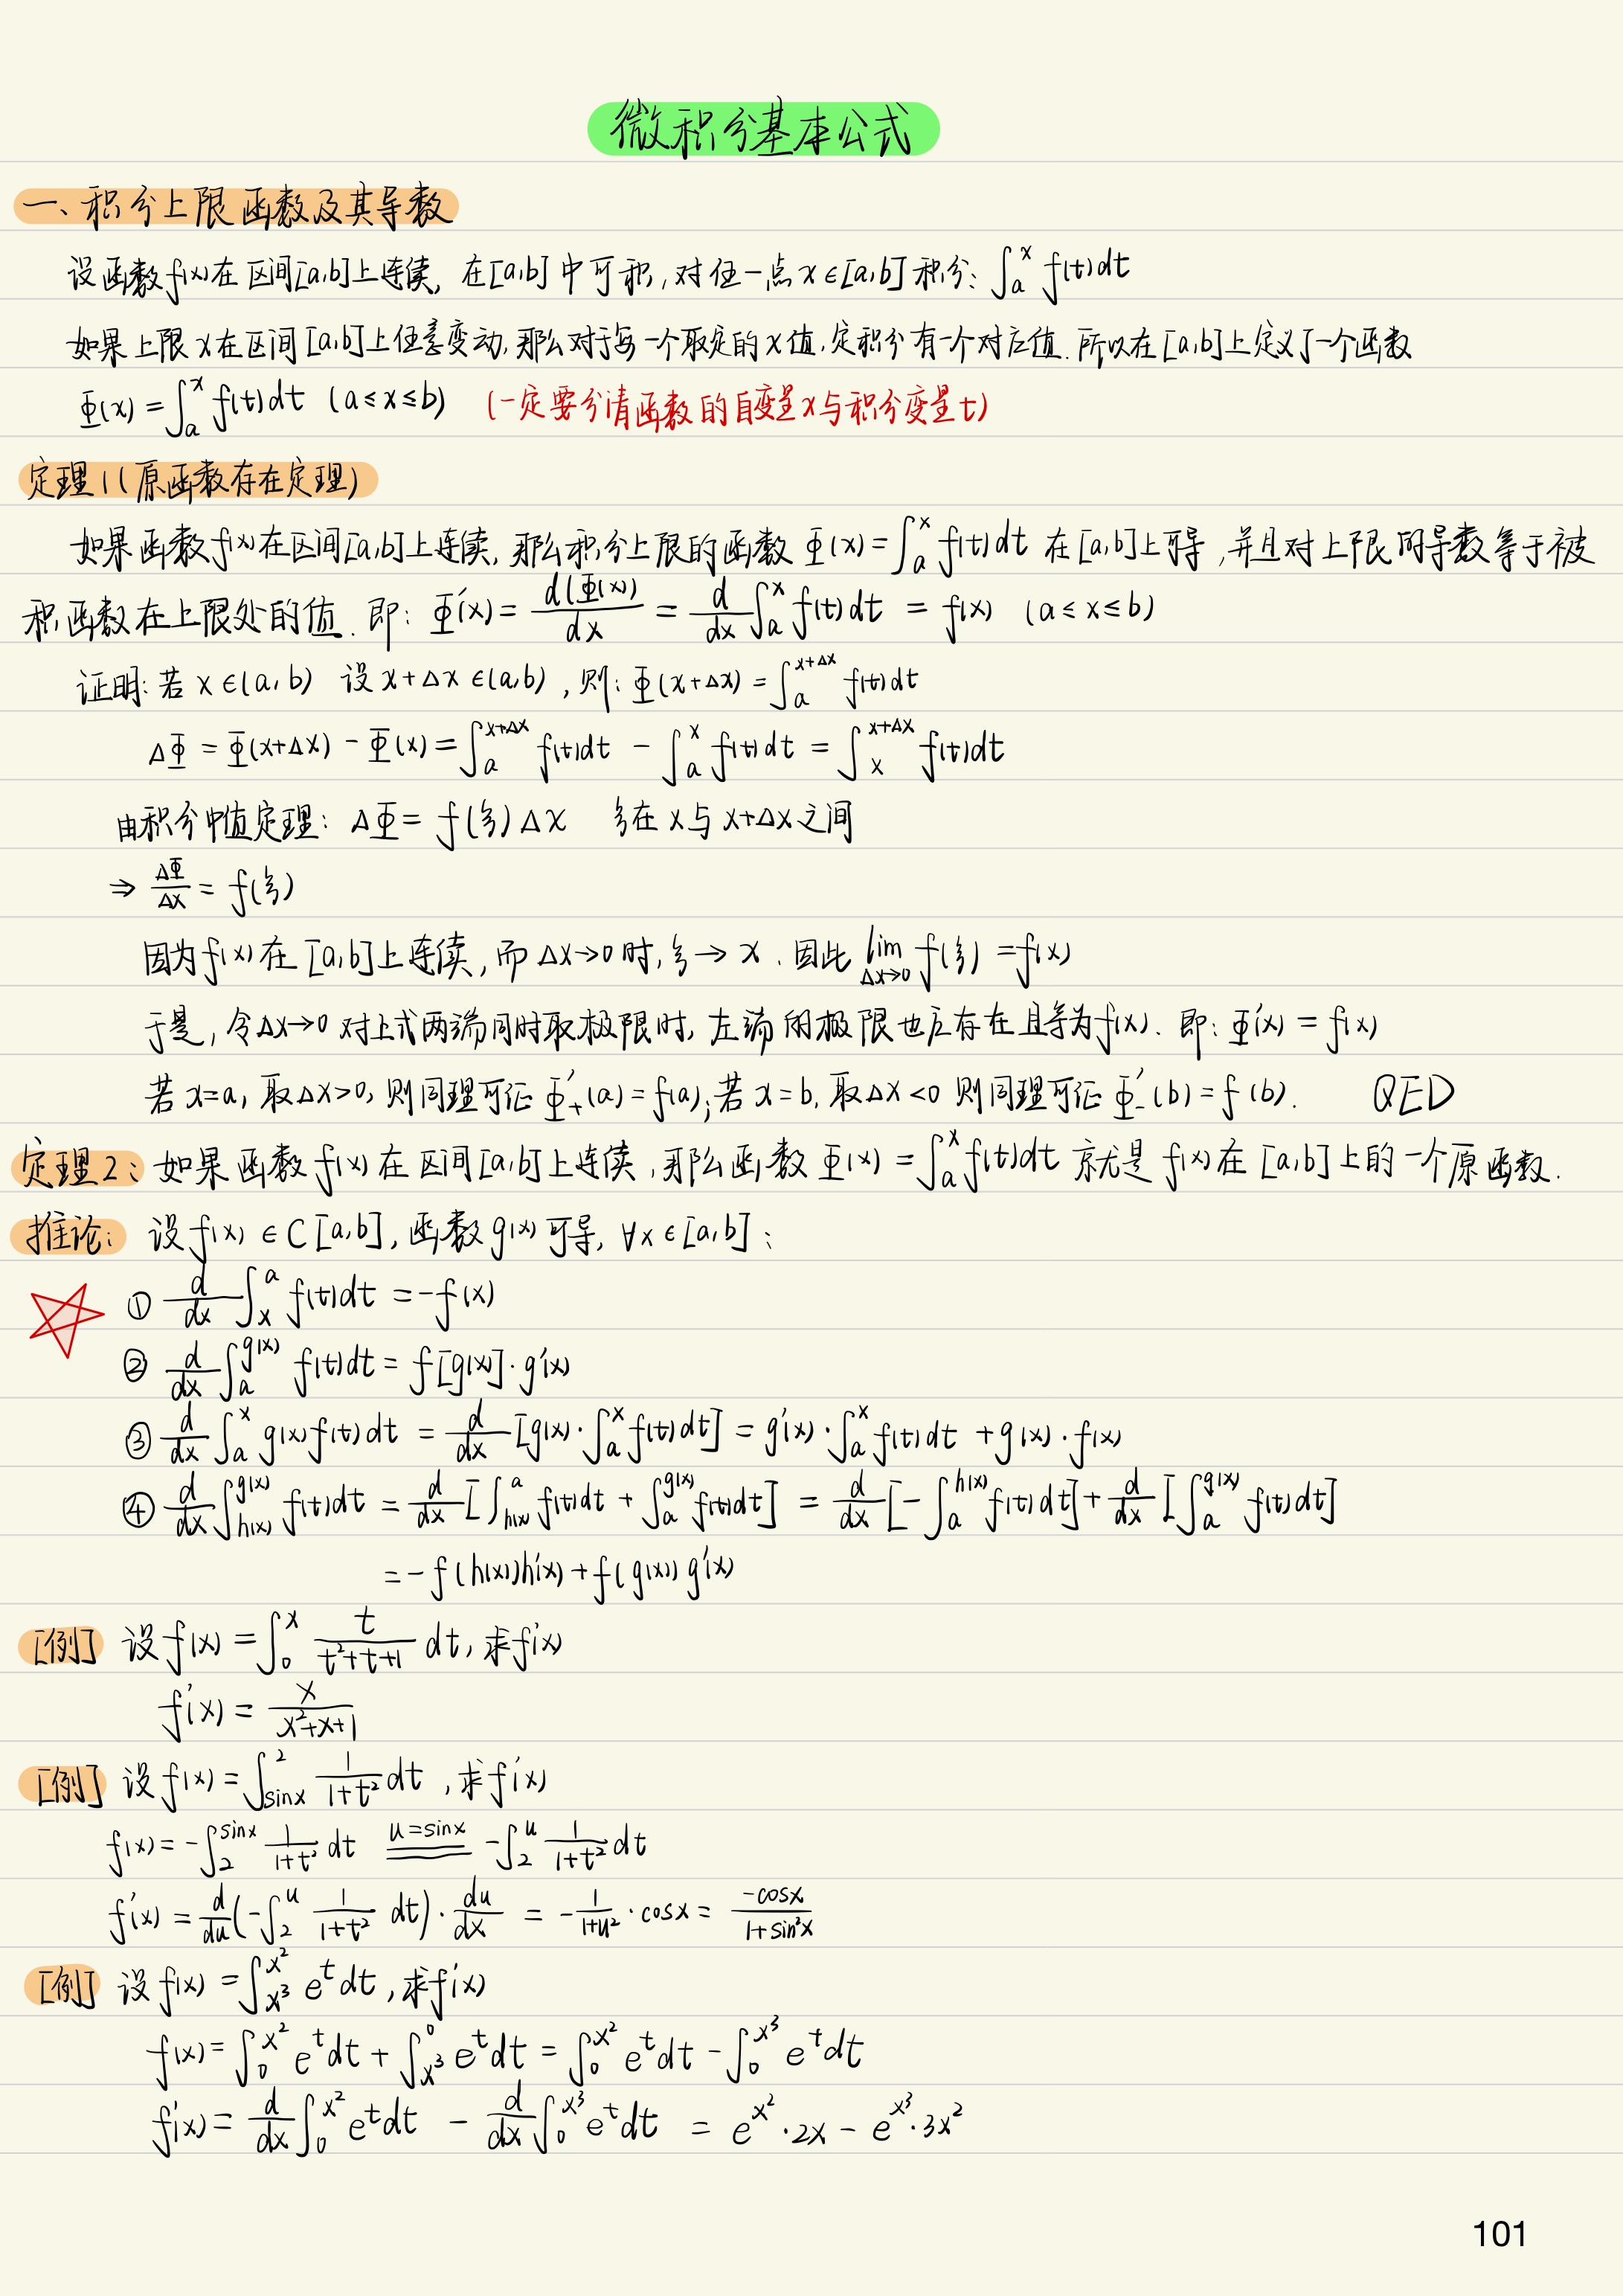 微积分基本公式
一、积分上限函数及其导数
设函数f(x)在区间[a,b]上连续，在[a,b]中可积，对任一点x∈[a,b]积分：∫_a^x f(t)dt
如果上限x在区间[a,b]上任意变动，那么对于每一个取定的x值，定积分有一个对应值．所以在[a,b]上定义了一个函数
Φ(x)=∫_a^x f(t)dt (a≤x≤b) (一定要分清函数的自变量x与积分变量t)
定理1(原函数存在定理)
如果函数f(x)在区间[a,b]上连续，那么积分上限的函数Φ(x)=∫_a^x f(t)dt在[a,b]上可导，并且对上限的导数等于被
积函数在上限处的值．即：Φ'(x)=d(Φ(x))/dx=d/dx∫_a^x f(t)dt=f(x) (a≤x≤b)
证明：若x∈(a,b) 设x+Δx∈(a,b)，则：Φ(x+Δx)=∫_a^{x+Δx} f(t)dt
ΔΦ=Φ(x+Δx)-Φ(x)=∫_a^{x+Δx} f(t)dt-∫_a^x f(t)dt=∫_x^{x+Δx} f(t)dt
由积分中值定理：ΔΦ=f(ξ)Δx ξ在x与x+Δx之间
⇒ΔΦ/Δx=f(ξ)
因为f(x)在[a,b]上连续，而Δx→0时，ξ→x．因此lim_{Δx→0} f(ξ)=f(x)
于是，令Δx→0对上式两端同时取极限时，左端的极限也应存在且等为f(x)．即：Φ'(x)=f(x)
若x=a，取Δx>0，则同理可证Φ'₊(a)=f(a)；若x=b，取Δx<0则同理可证Φ'₋(b)=f(b)． QED
定理2：如果函数f(x)在区间[a,b]上连续，那么函数Φ(x)=∫_a^x f(t)dt就是f(x)在[a,b]上的一个原函数．
推论：设f(x)∈C[a,b]，函数g(x)可导，∀x∈[a,b]：
① d/dx∫_x^a f(t)dt=-f(x)
② d/dx∫_a^{g(x)} f(t)dt=f[g(x)]·g'(x)
③ d/dx∫_a^x g(x)f(t)dt=d/dx[g(x)·∫_a^x f(t)dt]=g'(x)·∫_a^x f(t)dt+g(x)·f(x)
④ d/dx∫_{h(x)}^{g(x)} f(t)dt=d/dx[∫_{h(x)}^a f(t)dt+∫_a^{g(x)} f(t)dt]=d/dx[-∫_a^{h(x)} f(t)dt]+d/dx[∫_a^{g(x)} f(t)dt]
=-f(h(x))h'(x)+f(g(x))g'(x)
[例] 设f(x)=∫_0^x t/(t²+t+1) dt，求f'(x)
f'(x)=x/(x²+x+1)
[例] 设f(x)=∫_{sinx}^2 1/(1+t²) dt，求f'(x)
f(x)=-∫_2^{sinx} 1/(1+t²) dt u=sinx -∫_2^u 1/(1+t²) dt
f'(x)=d/du(-∫_2^u 1/(1+t²) dt)·du/dx=-1/(1+u²)·cosx=-cosx/(1+sin²x)
[例] 设f(x)=∫_{x³}^{x²} e^t dt，求f'(x)
f(x)=∫_0^{x²} e^t dt+∫_{x³}^0 e^t dt=∫_0^{x²} e^t dt-∫_0^{x³} e^t dt
f'(x)=d/dx∫_0^{x²} e^t dt-d/dx∫_0^{x³} e^t dt=e^{x²}·2x-e^{x³}·3x²
101